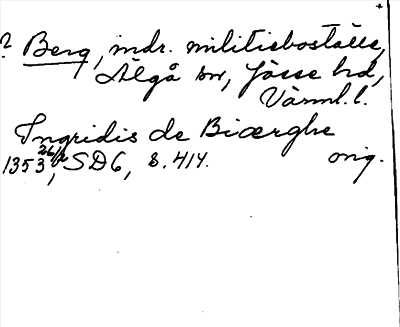 ? Berg, indr. militieboställe,
Älgå sn, Jösse hd,
Värml. l.
Ingridis de Biærghe
1353 26/2, SD6, s. 414. orig.